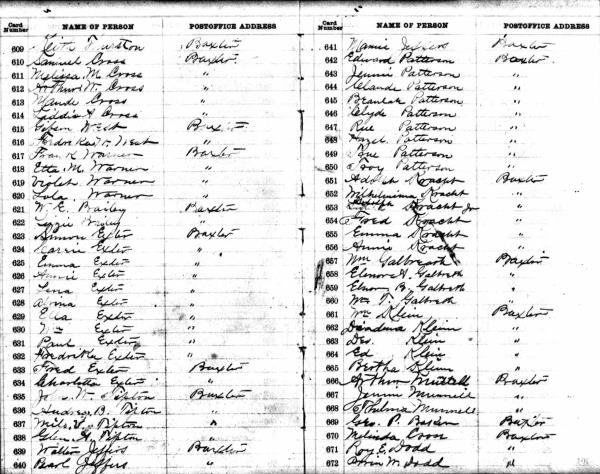 Card Number NAME OF PERSON POSTOFFICE ADDRESS
609 Keith Thurston Baxter
610 Samuel Cross Baxter
611 Melissa M Cross "
612 Arthur W. Cross "
613 Maude Cross "
614 Cross "
615 Gibson West Baxter
616 West "
617 Frank Warner Baxter
618 Etta M. Warner "
619 Violet Warner "
620 Lola Warner "
621 W. E. Bailey Baxter
622 Bailey "
623 Simon Exter Baxter
624 Carrie Exter "
625 Emma Exter "
626 Annie Exter "
627 Lena Exter "
628 Alvina Exter "
629 Ella Exter "
630 Wm Exter "
631 Paul Exter "
632 Exter "
633 Fred Exter Baxter
634 Charlotta Exter "
635 W. Tipton Baxter
636 Audrey B. Tipton "
637 Tipton "
638 Glenn Tipton "
639 Walter Jeffers Baxter
640 Jeffers "
Card Number NAME OF PERSON POSTOFFICE ADDRESS
641 Mamie Jeffers Baxter
642 Edward Patterson Baxter
643 Jennie Patterson "
644 Claude Patterson "
645 Beaulah Patterson "
646 Clyde Patterson "
647 Rue Patterson "
648 Hazel Patterson "
649 Patterson "
650 Troy Patterson "
651 Kracht Baxter
652 Wilhelmina Kracht "
653 Kracht Jr "
654 Fred Kracht "
655 Emma Kracht "
656 Annie Kracht "
657 Wm Galbreath Baxter
658 Elenor A. Galbreth "
659 Elenor B. Galbreth "
660 Wm. T. Galbreth "
661 Wm Klein Baxter
662 Klein "
663 Des. Klein "
664 Ed Klein "
665 Bertha Klein "
666 Arthur Baxter
667 Jennie Munnell "
668 Thelma Munnell "
669 Geo. P. Baxter
670 Melinda Cross Baxter
671 Roy E. Dodd "
672 M. Dodd "